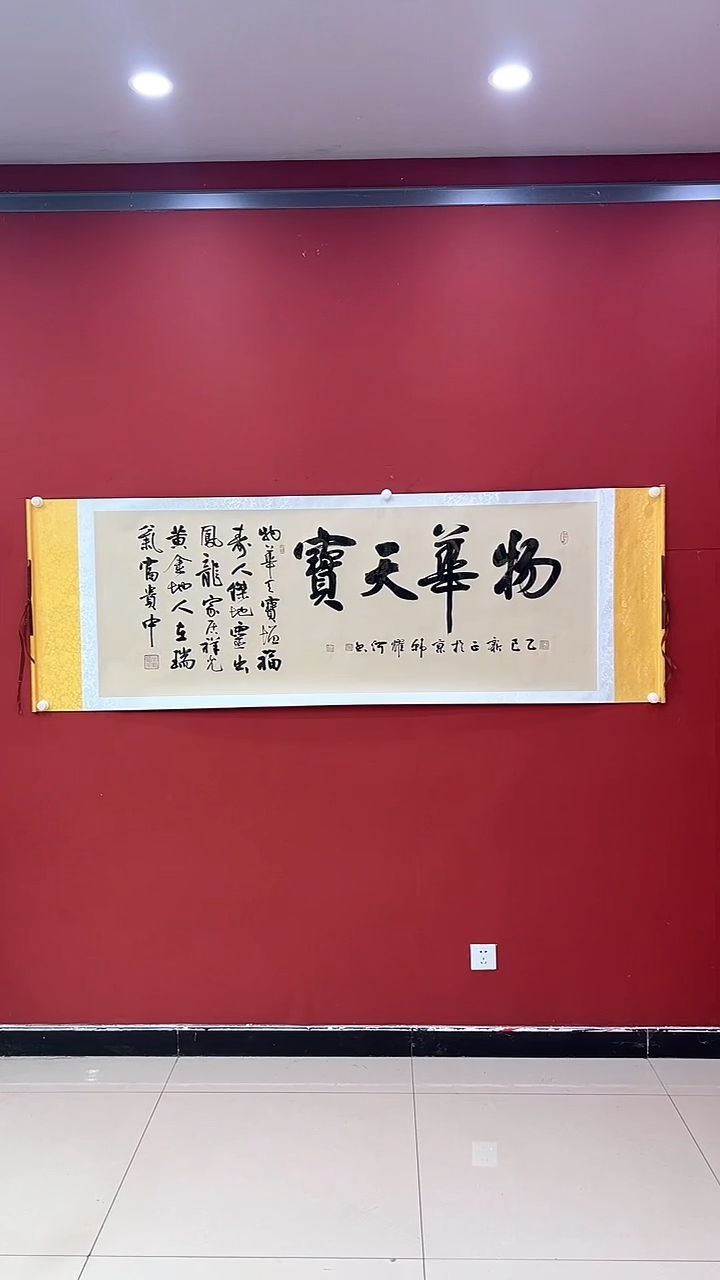 物華天寶
乙巳新正於京 耀何书
物華天寶增福
壽人傑地靈出
鳳龍家居祥光
黄金地人在瑞
氣富貴中